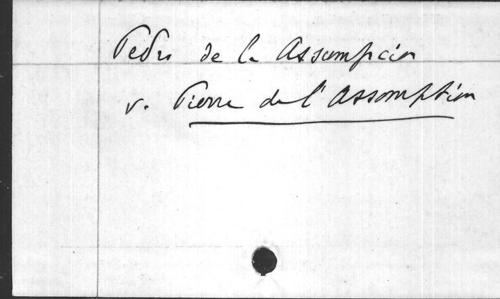 Pedro de la Assumpcion
v. Pierre de l'Assomption